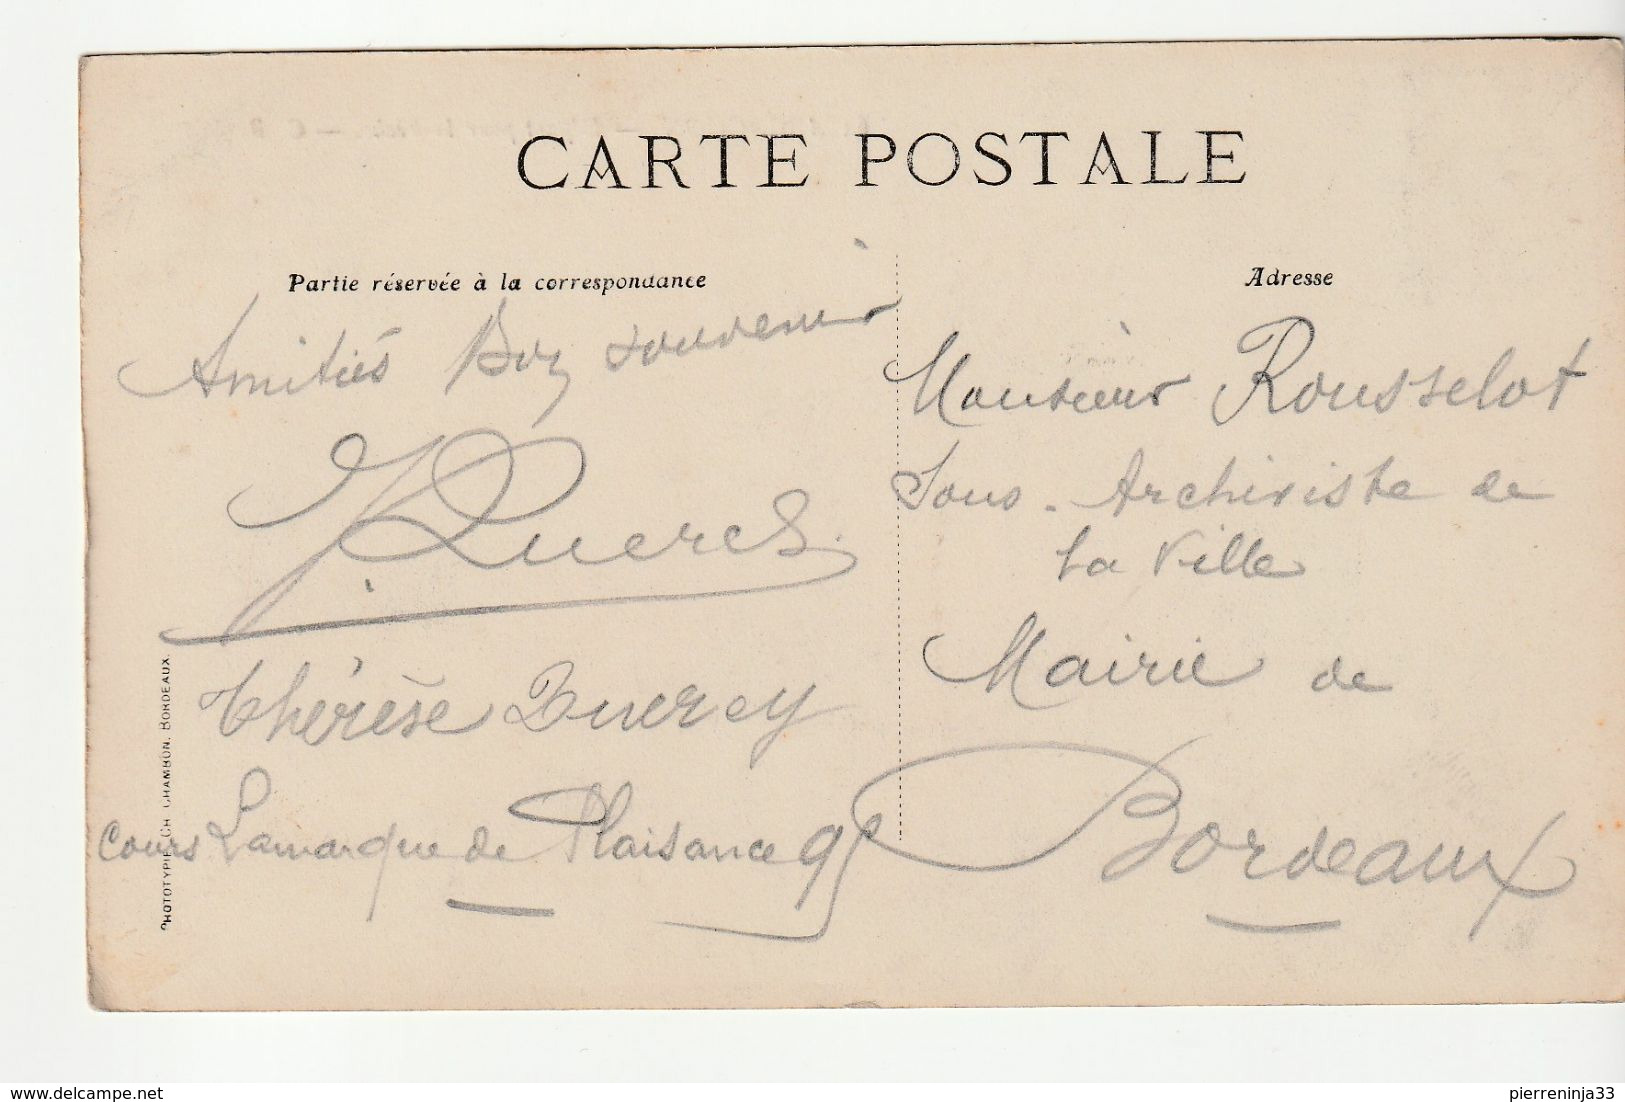 CARTE POSTALE
Partie réservée à la correspondance
Amitiés Bon souvenir
Thérèse
Cours Lamarque de Plaisance 95
PHOTOTYPIE CH. CHAMBON. BORDEAUX.
Adresse
Monsieur Rousselot
Sous-Archiviste de
la Ville
Mairie de
Bordeaux
www.delcampe.net
pierreninja33